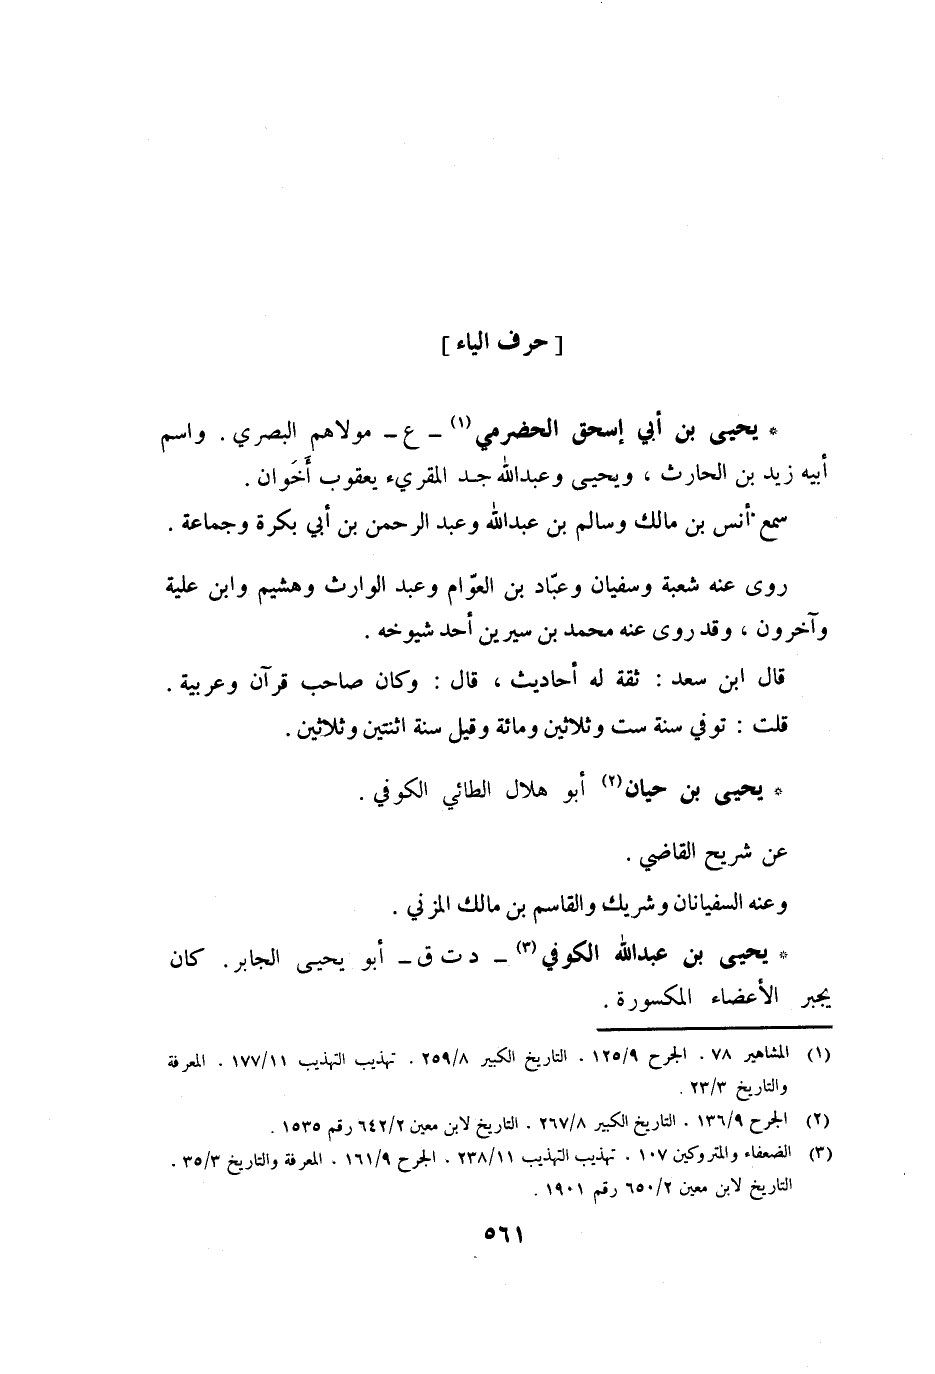 [ حرف الياء ]
* يحيى بن أبي إسحق الحضرمي(١) ـ ع ـ مولاهم البصري . واسم
أبيه زيد بن الحارث ، ويحيى وعبدالله جد المقريء يعقوب أَخَوان .
سمع أنس بن مالك وسالم بن عبدالله وعبد الرحمن بن أبي بكرة وجماعة .
روى عنه شعبة وسفيان وعبّاد بن العوّام وعبد الوارث وهشيم وابن علية
وآخرون ، وقد روى عنه محمد بن سيرين أحد شيوخه .
قال ابن سعد : ثقة له أحاديث ، قال : وكان صاحب قرآن وعربية .
قلت : توفي سنة ست وثلاثين ومائة وقيل سنة اثنتين وثلاثين .
* يحيى بن حيان(٢) أبو هلال الطائي الكوفي .
عن شريح القاضي .
وعنه السفيانان وشريك والقاسم بن مالك المزني .
* يحيى بن عبدالله الكوفي(٣) ـ د ت ق ـ أبو يحيى الجابر . كان
يجبر الأعضاء المكسورة .
(١) المشاهير ٧٨ . الجرح ١٢٥/٩ . التاريخ الكبير ٢٥٩/٨ . تهذيب التهذيب ١٧٧/١١ . المعرفة
والتاريخ ٢٣/٣ .
(٢) الجرح ١٣٦/٩ . التاريخ الكبير ٢٦٧/٨ . التاريخ لابن معين ٦٤٢/٢ رقم ١٥٣٥ .
(٣) الضعفاء والمتروكين ١٠٧ . تهذيب التهذيب ٢٣٨/١١ . الجرح ١٦١/٩ . المعرفة والتاريخ ٣٥/٣ .
التاريخ لابن معين ٦٥٠/٢ رقم ١٩٠١ .
٥٦١